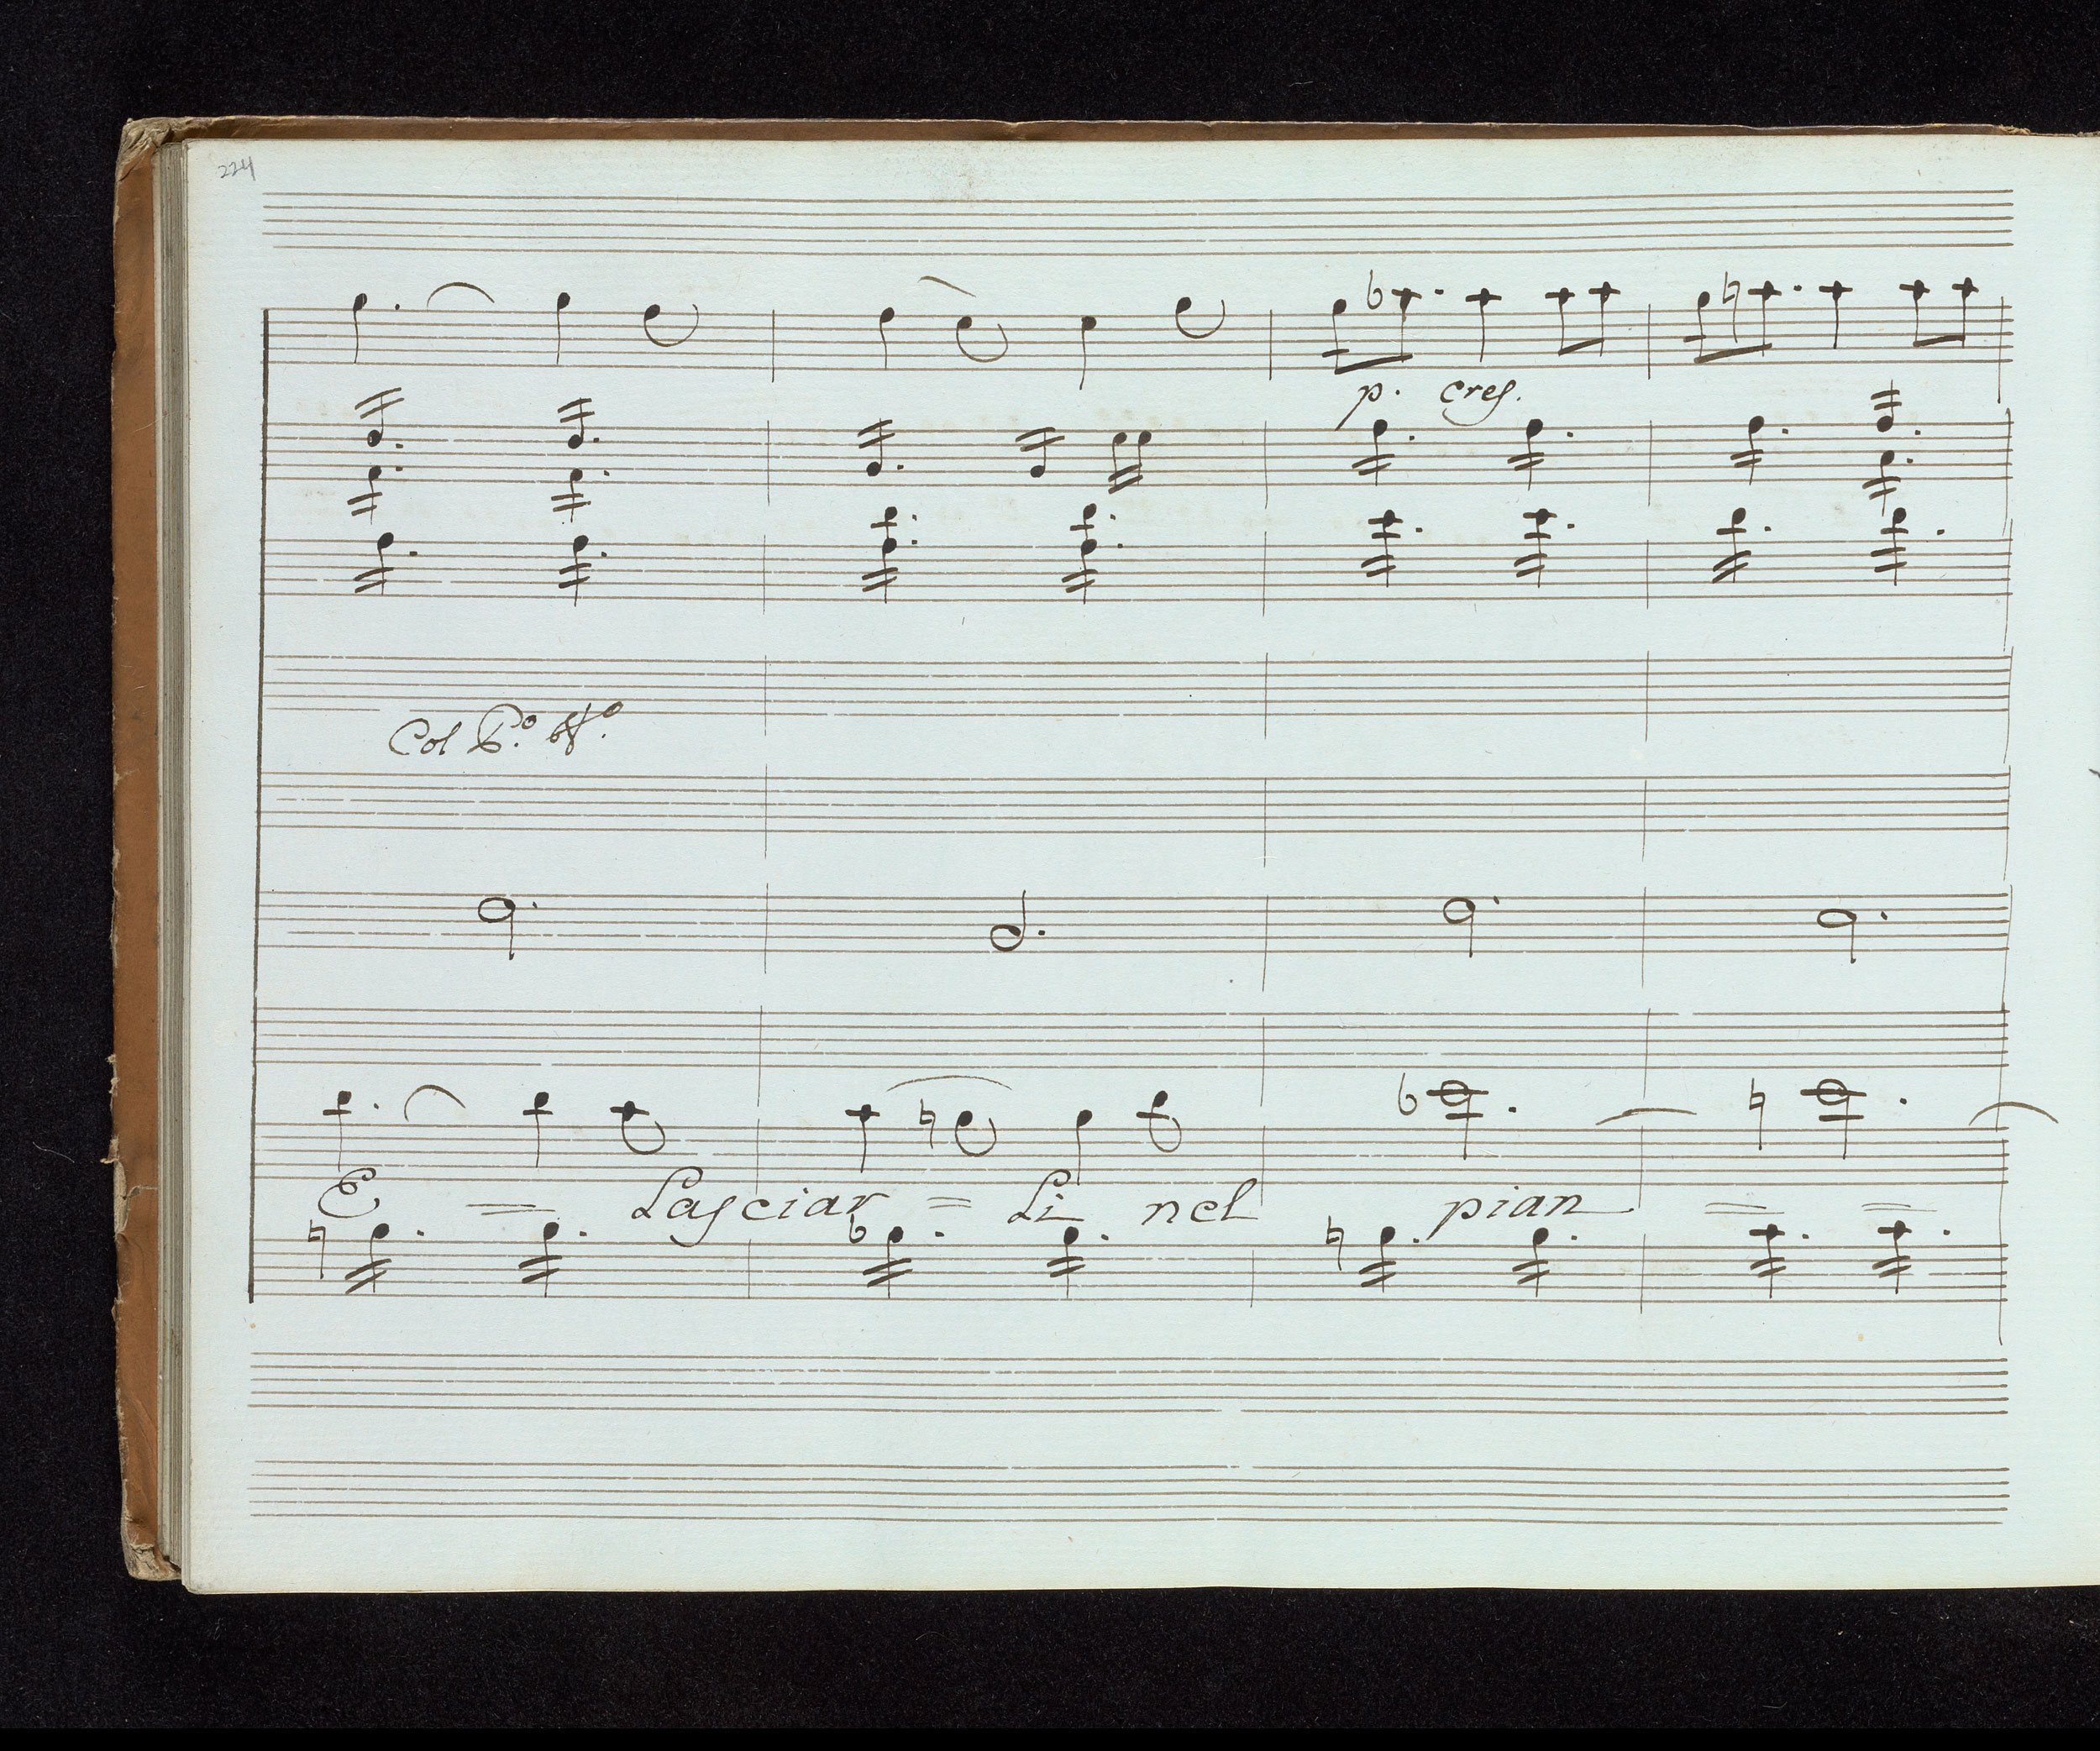 224
p. cres.
Col P.º
E = Lasciar = Li nel pian = =